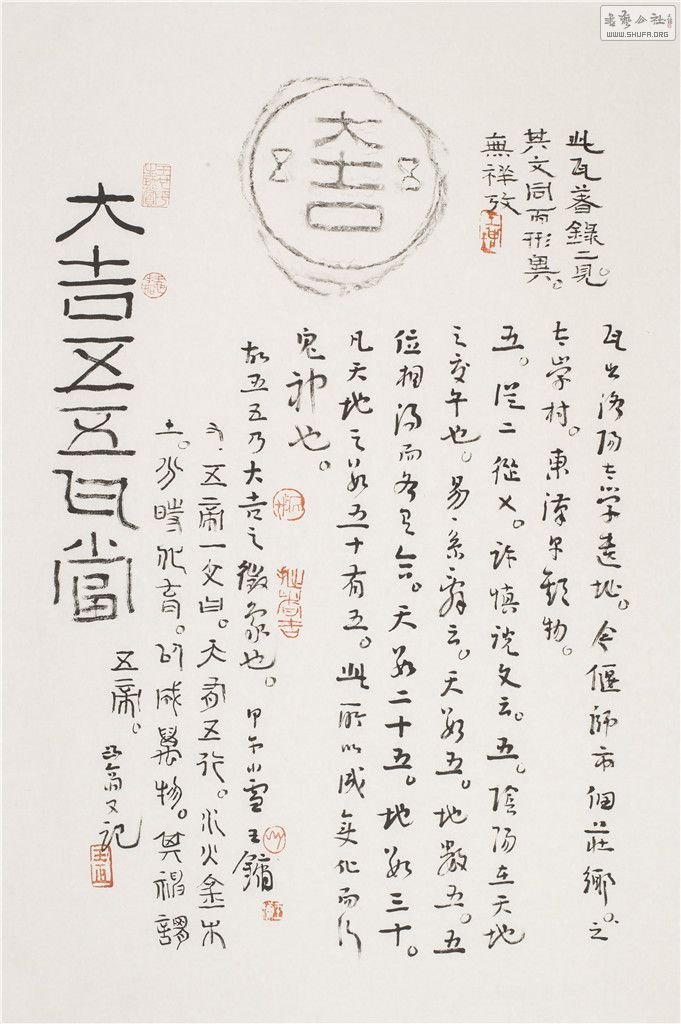 書藝公社
WWW.SHUFA.ORG
此瓦著錄二見。
其文同而形異。
無祥攷
大吉
五 五
大吉五五瓦當
瓦出洛陽太學遺址。今偃師市佃莊鄉。之
太學村。東漢早期物。
五。從二從乂。許慎說文云。五。陰陽在天地
之交午也。易繫辭云。天數五。地數五。五
位相得而各有合。天數二十五。地數三十。
凡天地之數五十有五。此所以成變化而行
鬼神也。
故五五乃大吉之徵象也。甲午小雪王鏞
又。五帝一文曰。天有五行。水火金木
土。分時化育。以成萬物。其神謂
五帝。
凸翁又記